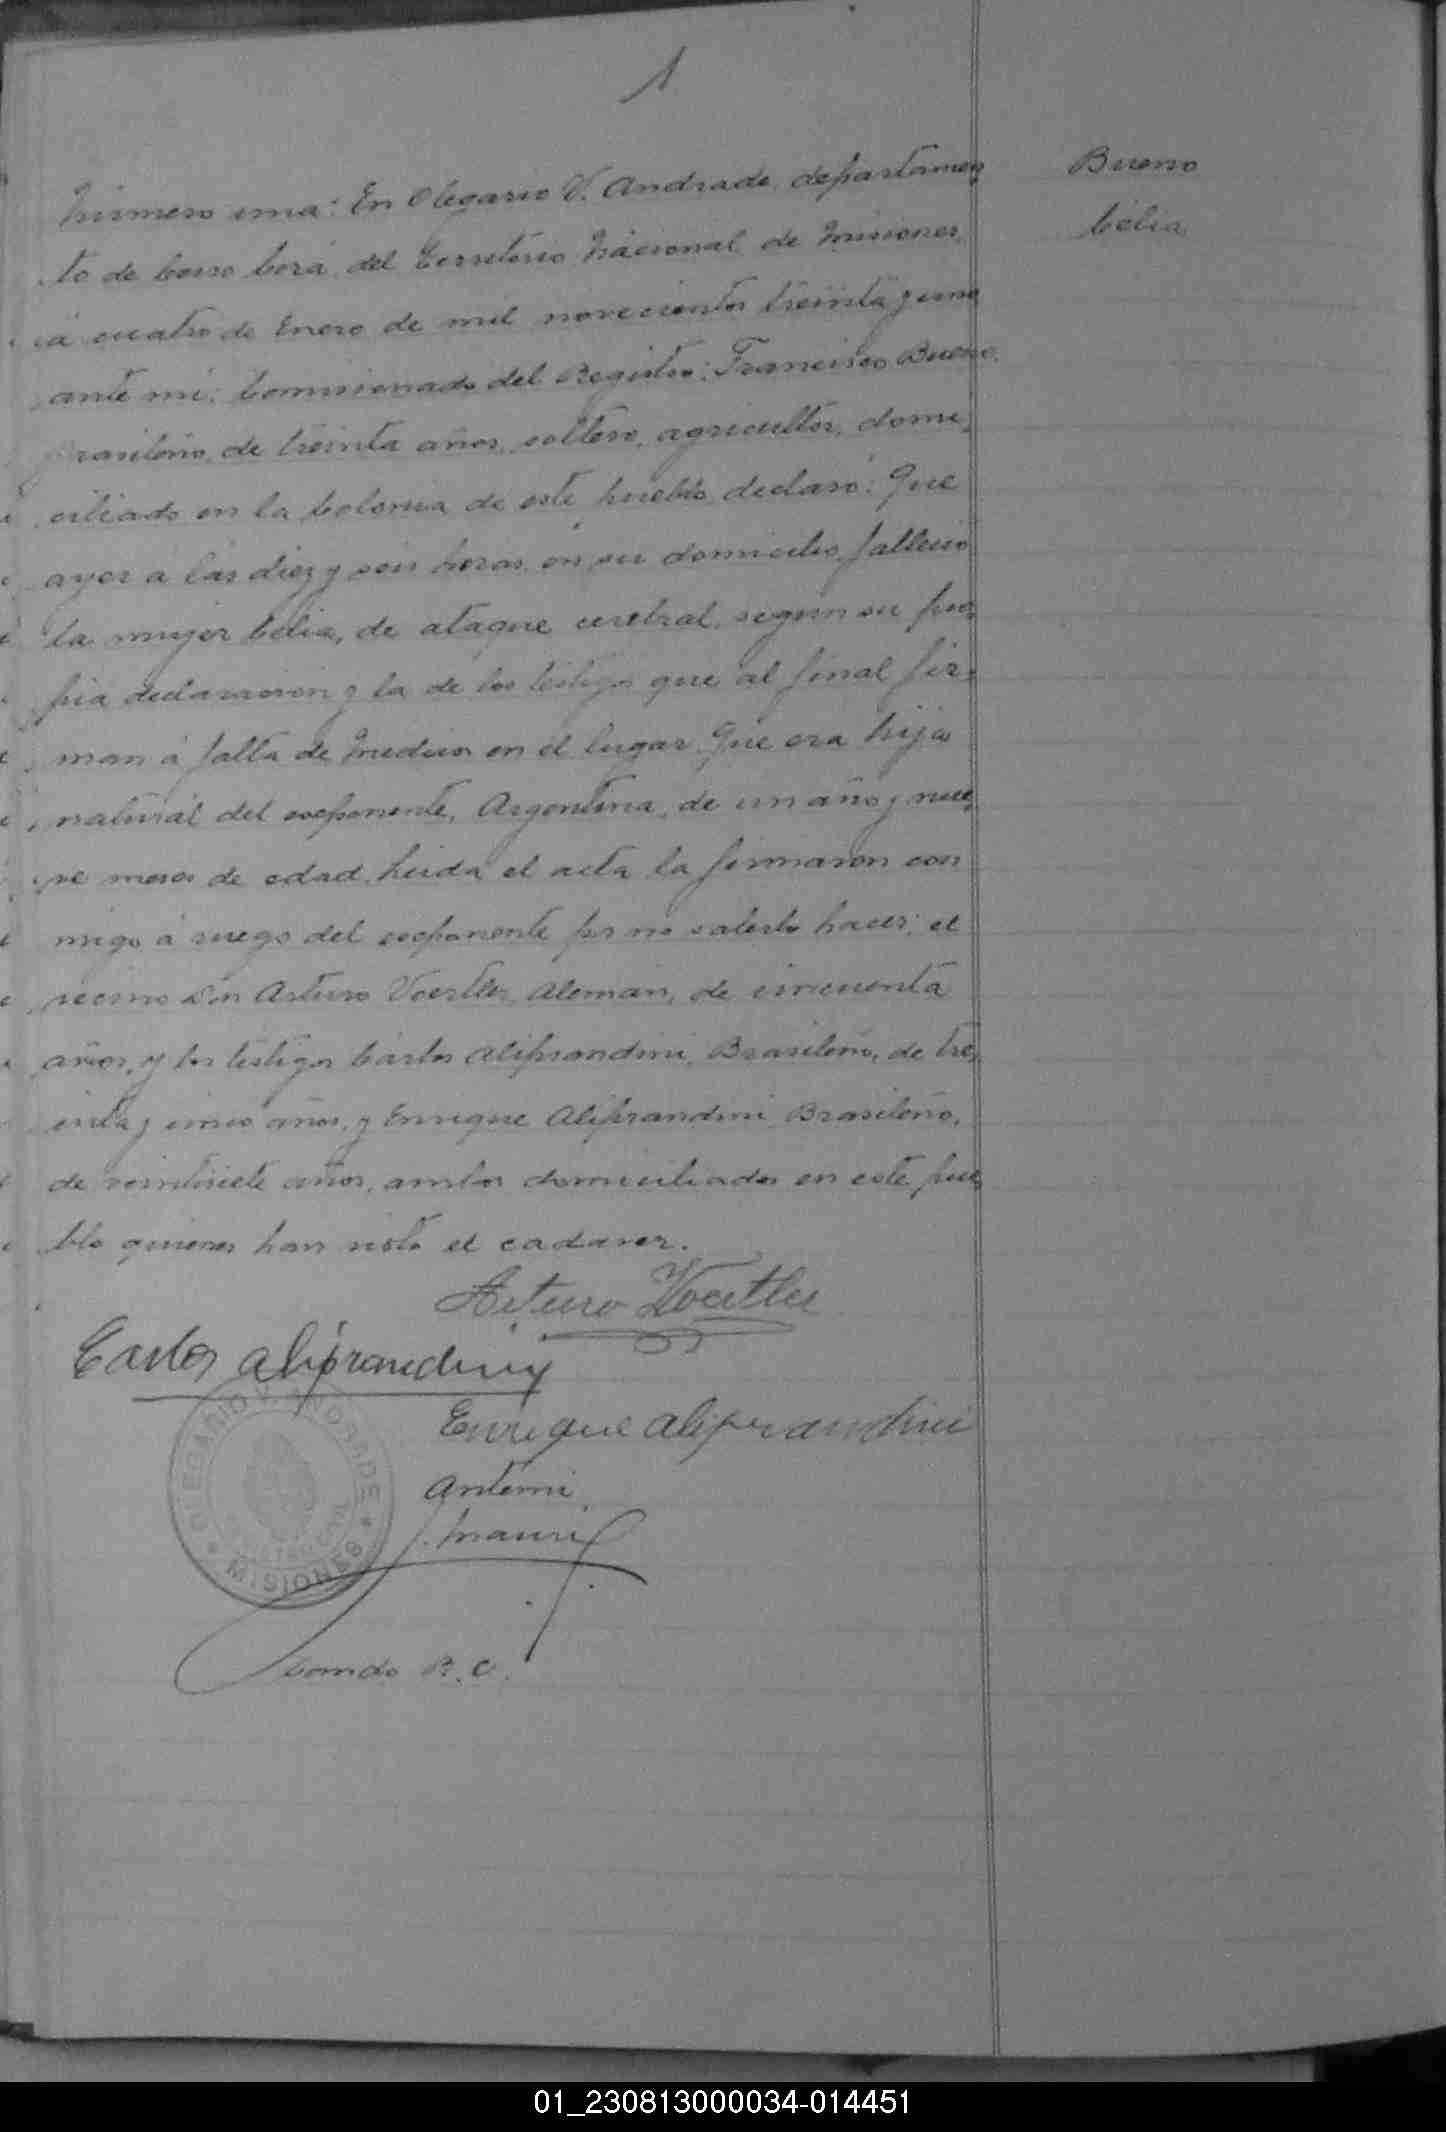 1
Bueno
Celia
Número una: En Olegario V. Andrade, departamen
to de Cerro Corá, del Territorio Nacional de Misiones,
á cuatro de Enero de mil novecientos treinta y uno
ante mi: Comisionado del Registro: Francisco Bueno.
Brasileño, de treinta años, soltero, agricultor, domi
ciliado en la Colonia de este pueblo, declaró: Que
ayer á las diez y seis horas en su domicilio, falleció
la mujer Celia, de ataque cerebral, segun su pro
pia declaracion y la de los testigos que al final fir
man á falta de Medicos en el lugar. Que era hija
natural del exponente, Argentina, de un año y nue
ve meses de edad. Leida el acta la firmaron con
migo á ruego del exponente por no saberlo hacer; el
vecino Don Arturo Voertler, Aleman, de cincuenta
años, y los testigos Carlos Aliprandini, Brasileño, de tre
inta y cinco años, y Enrique Aliprandini, Brasileño,
de veintisiete años, ambos domiciliados en este pue
blo quienes han visto el cadaver.
Arturo Voertler
Carlos Aliprandiny
Enrique Aliprandini
OLEGARIO V. ANDRADE
MISIONES
Antemi
J. Mauri
Comdo R.C.
01_230813000034-014451